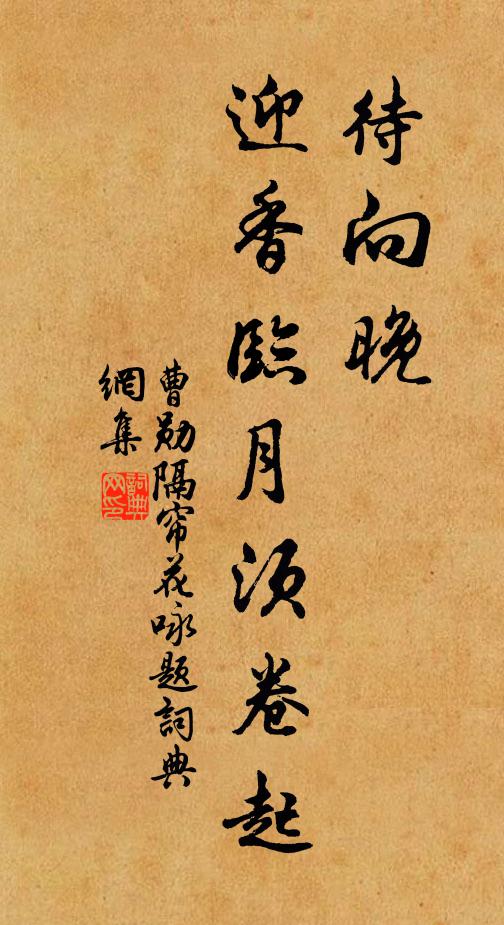 待向晚
迎香臨月須卷起
曹勛隔帘花咏題詞典
網集
詞典
网印